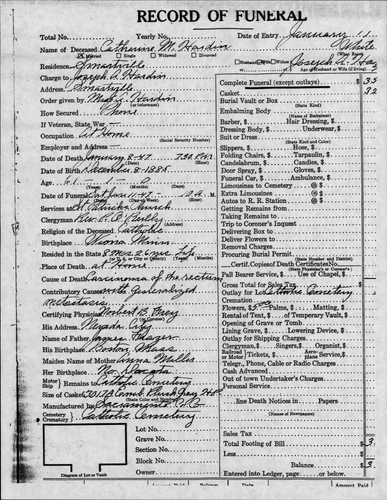 RECORD OF FUNERAL
Total No. Yearly No. Date of Entry January 11
Name of Deceased Catharine M. Hardin White
Married Single Widowed Divorced (What Race)
Residence Smartville
Husband Wife Widow of Joseph A.
Charge to Joseph A. Hardin Age of Husband or Wife (if living)
Address Smartville
Order given by Hardin
(or informant)
How Secured Phone
If Veteran, State War
Occupation At Home
(Social Security Number)
Employer and Address
Date of Death January 8-47 7:30 P.M.
Date of Birth December 8-1885
Age 61 1
Date of Funeral Jan 11-47 A.
Services at St Patricks Church
Clergyman Rev. P. O. Reilly
Religion of the Deceased Catholic
Birthplace Winona Minn
Resided in the State
Place of Death At Home
Cause of Death Carcinoma of the rectum
Contributory Causes with generalized
metastasis
Certifying Physician Norbert B. Frey
His Address Nevada City
Name of Father James
His Birthplace Boston Mass
Maiden Name of Mother Anna
Her Birthplace No. Dakota
Motor Ship Remains to Catholic Cemetery
Size of Casket
(State Color and Number)
Manufactured by Sacramento
Cemetery Crematory Catholic Cemetery
Lot No.
Grave No.
Section No.
Block No.
Owner.
Diagram of Lot or Vault
Complete Funeral (except outlays) $ 35
Casket 32
Burial Vault or Box
(State Kind)
Embalming Body
(Name of Embalmer)
Barber, $ Hair Dressing, $
Dressing Body, $ Underwear, $
Suit or Dress
(State Kind and Color)
Slippers, $ Hose, $
Folding Chairs, $ Tarpaulin, $
Candelabrum, $ Candles, $
Door Spray, $ Gloves, $
Funeral Car, $ Ambulance, $
Limousines to Cemetery @ $
Extra Limousines @ $
Autos to R. R. Station @ $
Getting Remains from
Taking Remains to
Trip to Coroner's Inquest
Delivering Box to
Deliver Flowers to
Removal Charges
Procuring Burial Permit
(State Number and District)
Certif. Copies of Death Certificates No.
(State Physician's or Coroner's)
Pall Bearer Service, $ Use of Chapel, $
Gross Total for Sales Tax
Outlay for Lot Catholic Cemetery
Cremation
Flowers, $ Palms, $ Matting, $
Rental of Tent, $ of Temporary Vault, $
Opening of Grave or Tomb
Lining Grave, $ Lowering Device, $
Outlay for Shipping Charges
Clergyman, $ Singers, $ Organist, $
Railroad or Motor Tickets, $ Aeroplane Service, $
Telegr., Phone, Cable or Radio Charges
Cash Advanced
Out of town Undertaker's Charges
Personal Service
line Death Notices in Papers
(Names of Newspapers)
Sales Tax
Total Footing of Bill $ 3
Less
Balance $ 3
Entered into Ledger, page or below.
Amount Paid